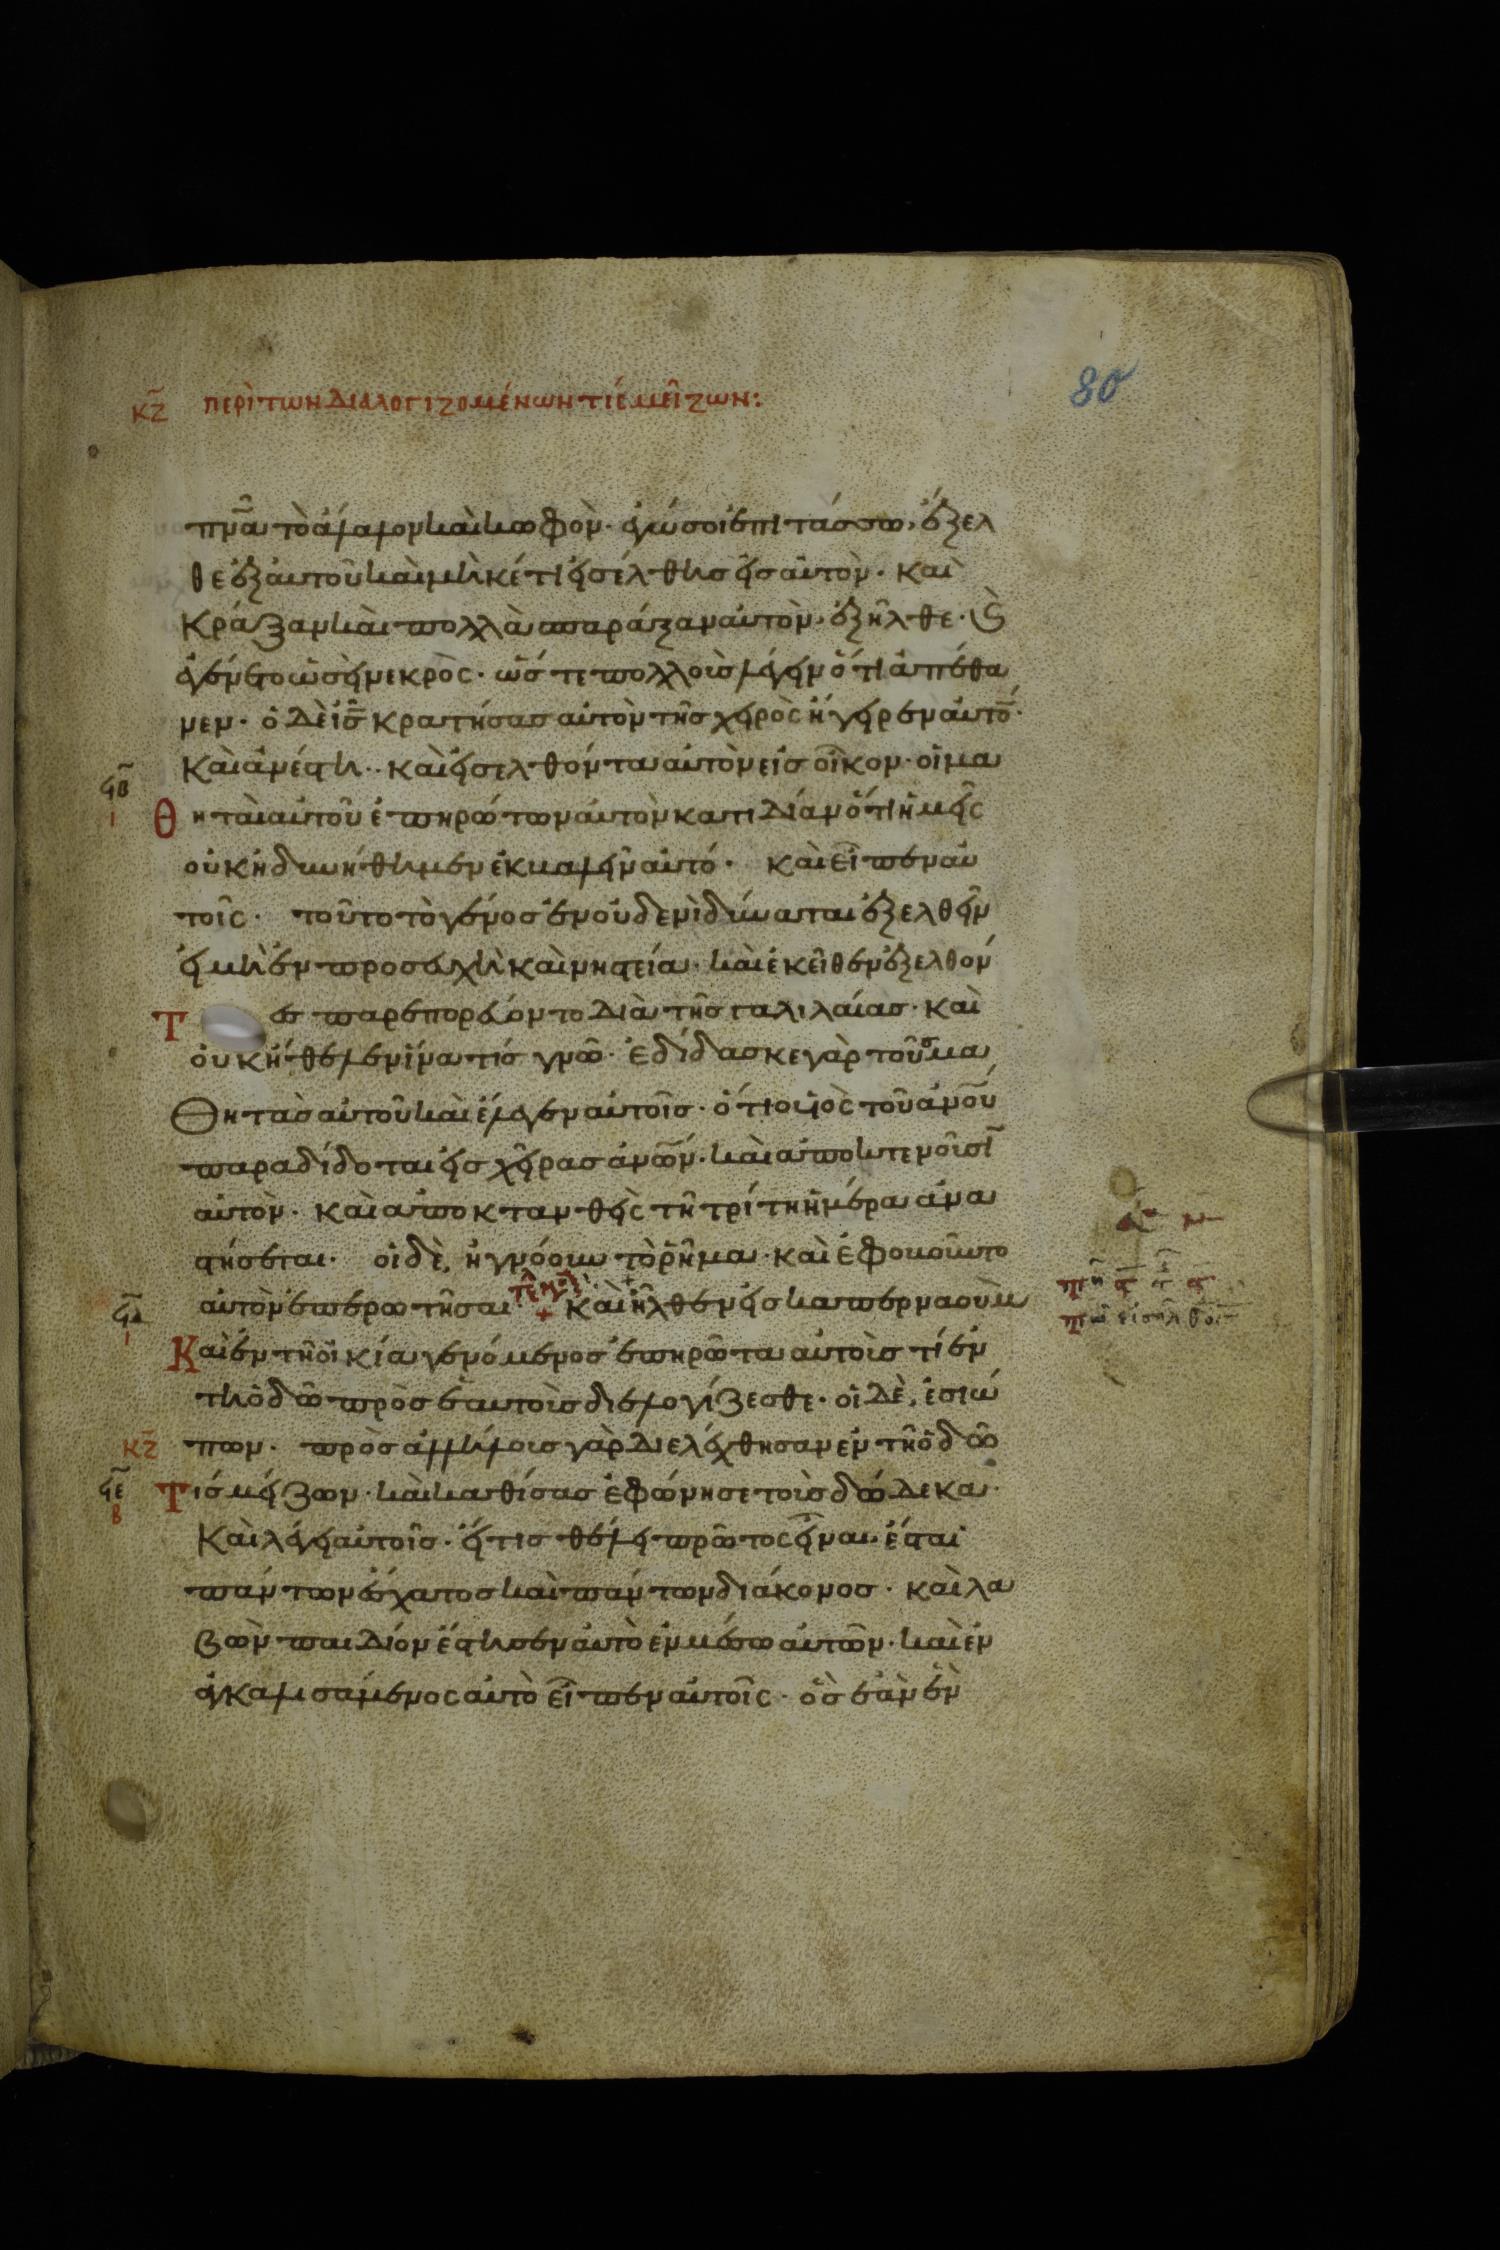 κζ περὶ τῶν διαλογιζομένων τίς μείζων:
80
πνᾶ τὸ ἄλαλον καὶ κωφὸν· ἐγώ σοι ἐπιτάσσω, ἔξελ
θε ἐξ αὐτοῦ καὶ μηκέτι εἰσέλθης εἰς αὐτὸν· καὶ
κράξαν καὶ πολλὰ σπαράξαν αὐτὸν, ἐξῆλθε· καὶ
ἐγένετο ὡσεὶ νεκρὸς· ὥστε πολλοὺς λέγειν ὅτι ἀπέθα
νεν· ὁ δὲ ις κρατήσας αὐτὸν τῆς χειρὸς ἤγειρεν αὐτὸν·
καὶ ἀνέστη· καὶ εἰσελθόντα αὐτὸν εἰς οἶκον· οἱ μα
ϟβ
ι
θηταὶ αὐτοῦ ἐπηρώτων αὐτὸν κατιδίαν ὅτι ἡμεῖς
οὐκ ἠδυνήθημεν ἐκβαλεῖν αὐτό· καὶ εἶπεν αὐ
τοῖς· τοῦτο τὸ γένος ἐν οὐδενὶ δύναται ἐξελθεῖν
εἰ μὴ ἐν προσευχῆ καὶ νηστεία· καὶ ἐκεῖθεν ἐξελθόν
τες παρεπορεύοντο διὰ τῆς γαλιλαίας· καὶ
οὐκ ἤθελεν ἵνα τίς γνῶ· ἐδίδασκε γὰρ τοὺς μα
θητὰς αὐτοῦ καὶ ἔλεγεν αὐτοῖς· ὅτι ὁ υἱὸς τοῦ ἀνου
παραδίδοται εἰς χεῖρας ἀνων· καὶ ἀποκτενοῦσιν
αὐτὸν· καὶ ἀποκτανθεὶς τῆ τρίτη ἡμέρα ἀνα
στήσεται· οἱ δὲ, ἠγνόουν τὸ ῥῆμα· καὶ ἐφοβοῦντο
ϟδ
ι
αὐτὸν ἐπερωτῆσαι + καὶ ἦλθεν εἰς καπερναοὺμ
καὶ ἐν τῆ οἰκία γενόμενος ἐπηρῶτα αὐτοὺς τί ἐν
τῆ ὁδῶ πρὸς ἑαυτοὺς διελογίζεσθε· οἱ δὲ, ἐσιώ
κζ πων· πρὸς ἀλλήλους γὰρ διελέχθησαν ἐν τῆ ὁδῶ
ϟε
β
τίς μείζων· καὶ καθίσας ἐφώνησε τοὺς δώδεκα·
καὶ λέγει αὐτοῖς· εἴ τις θέλει πρῶτος εἶναι, ἔσται
πάντων ἔσχατος καὶ πάντων διάκονος· καὶ λα
βὼν παιδίον ἔστησεν αὐτὸ ἐν μέσω αὐτῶν· καὶ ἐν
αγκαλισάμενος αὐτὸ εἶπεν αὐτοῖς· ὃς ἐὰν ἓν